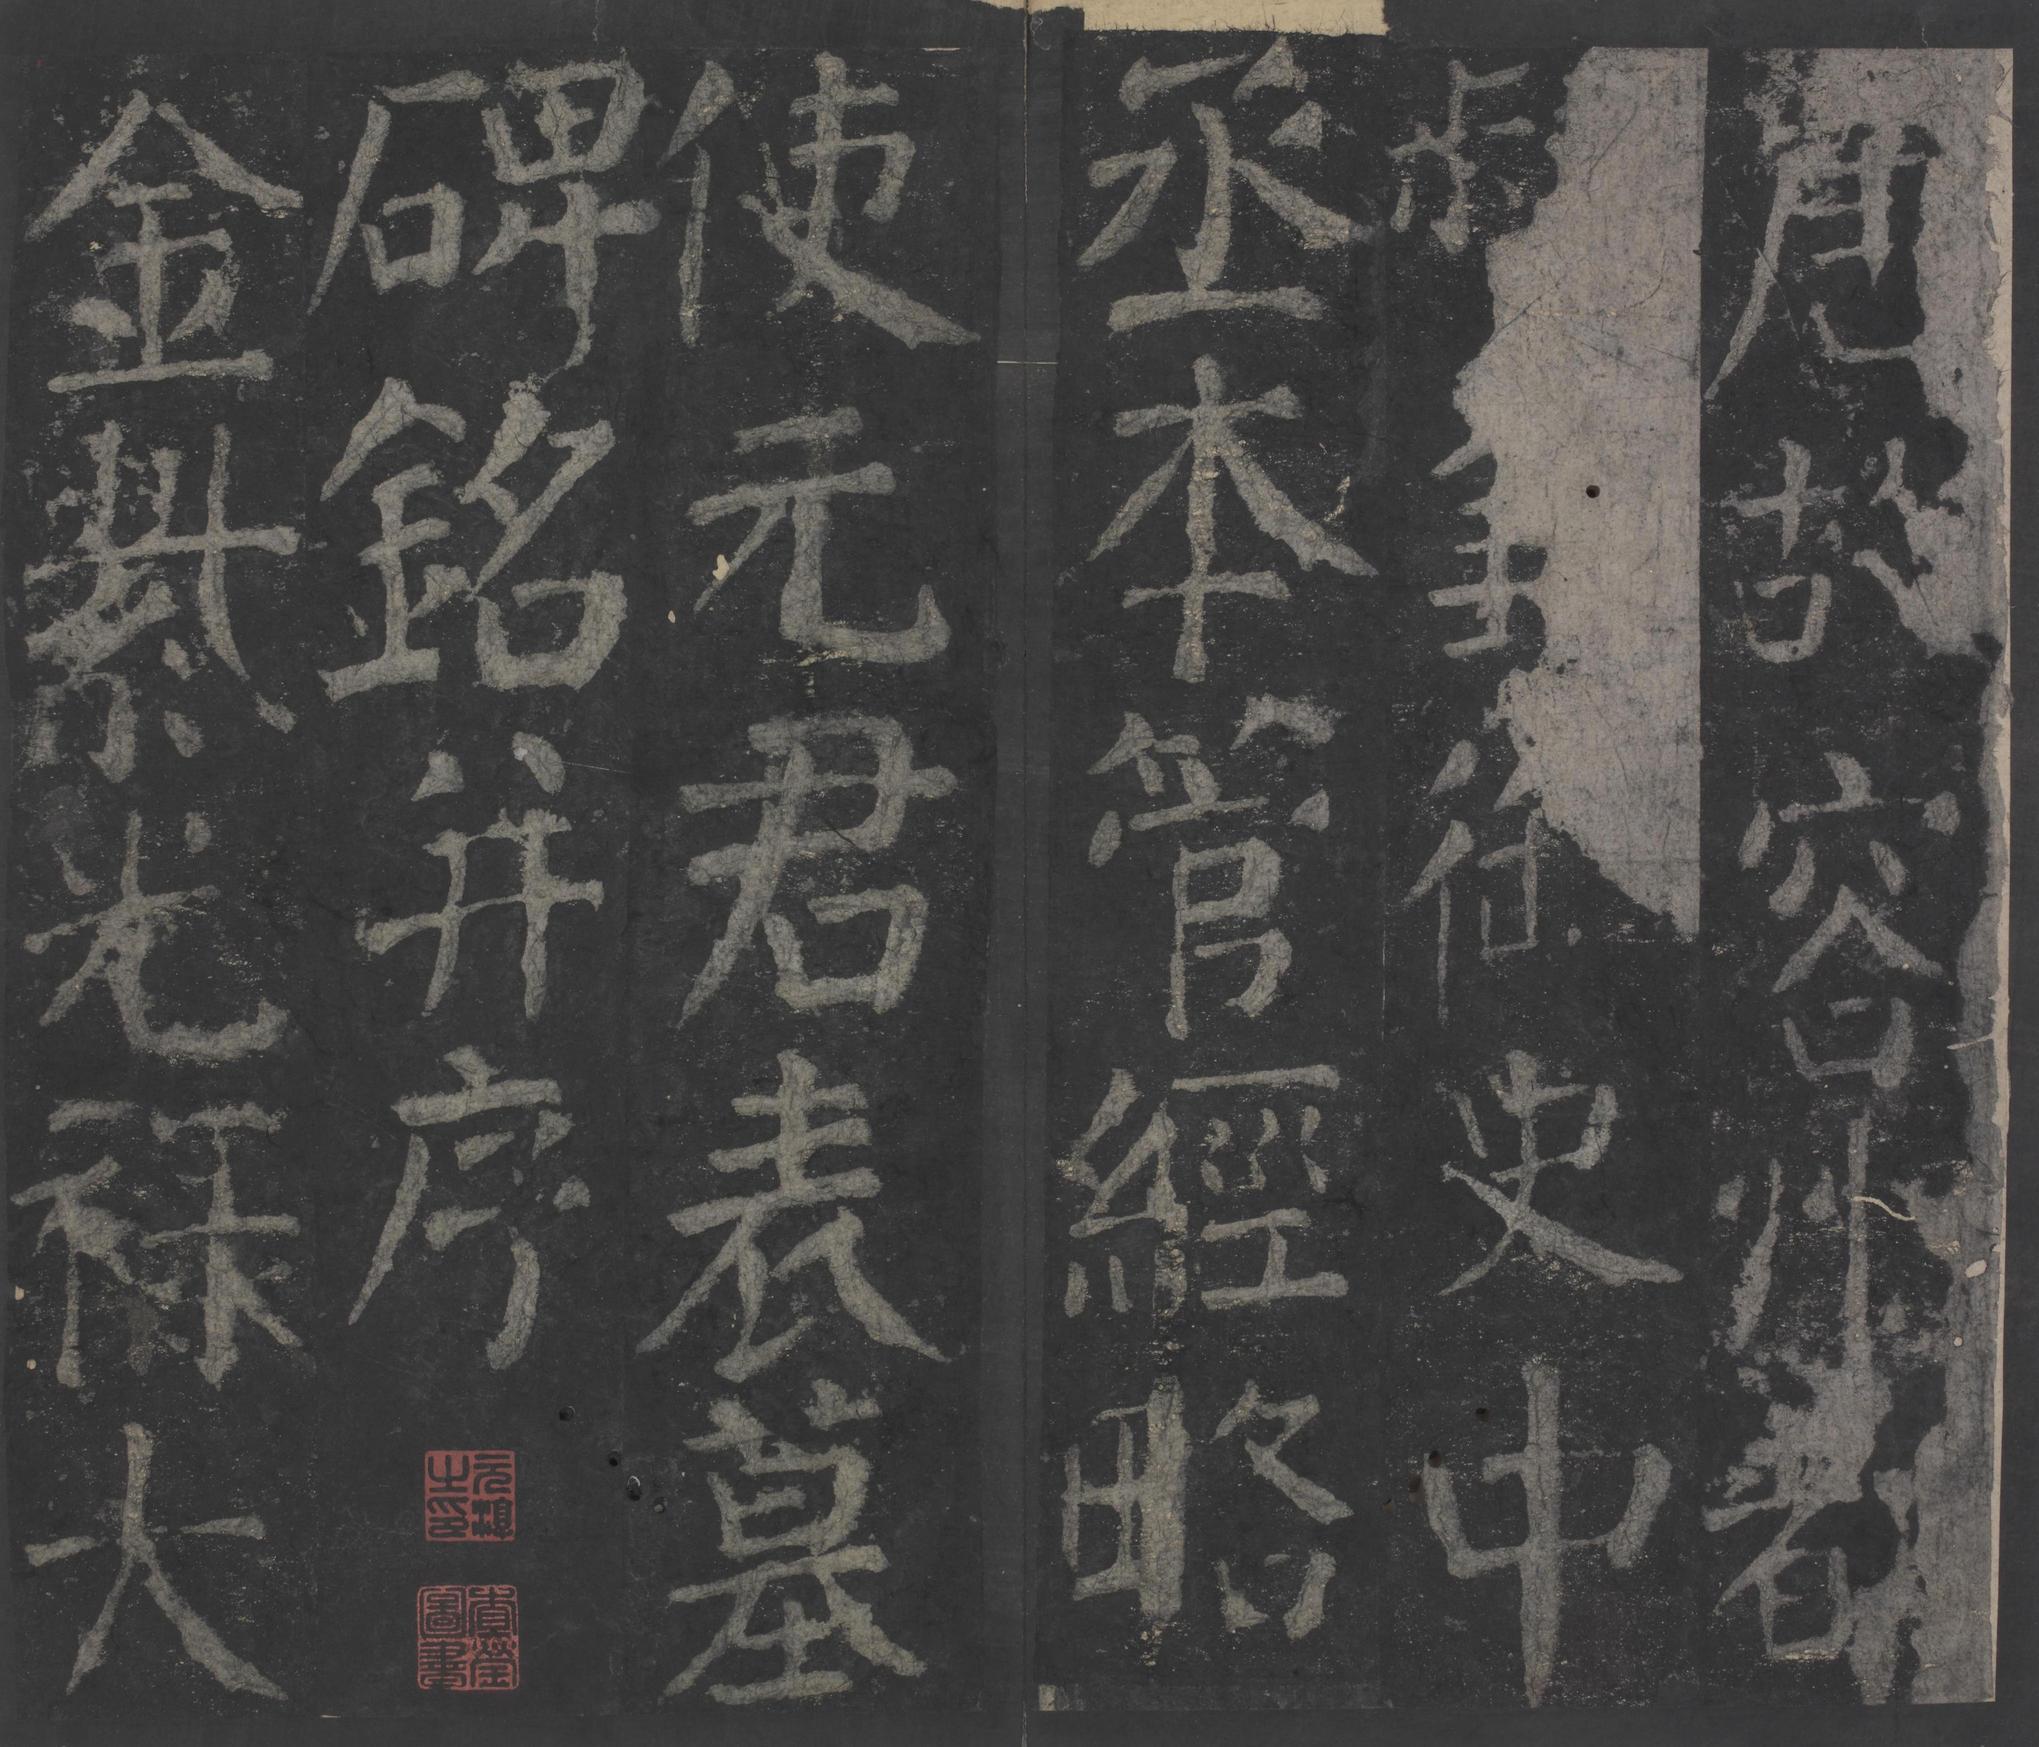 唐故容州都
御史中
丞本管經略
使元君表墓
碑銘并序
金紫光禄大